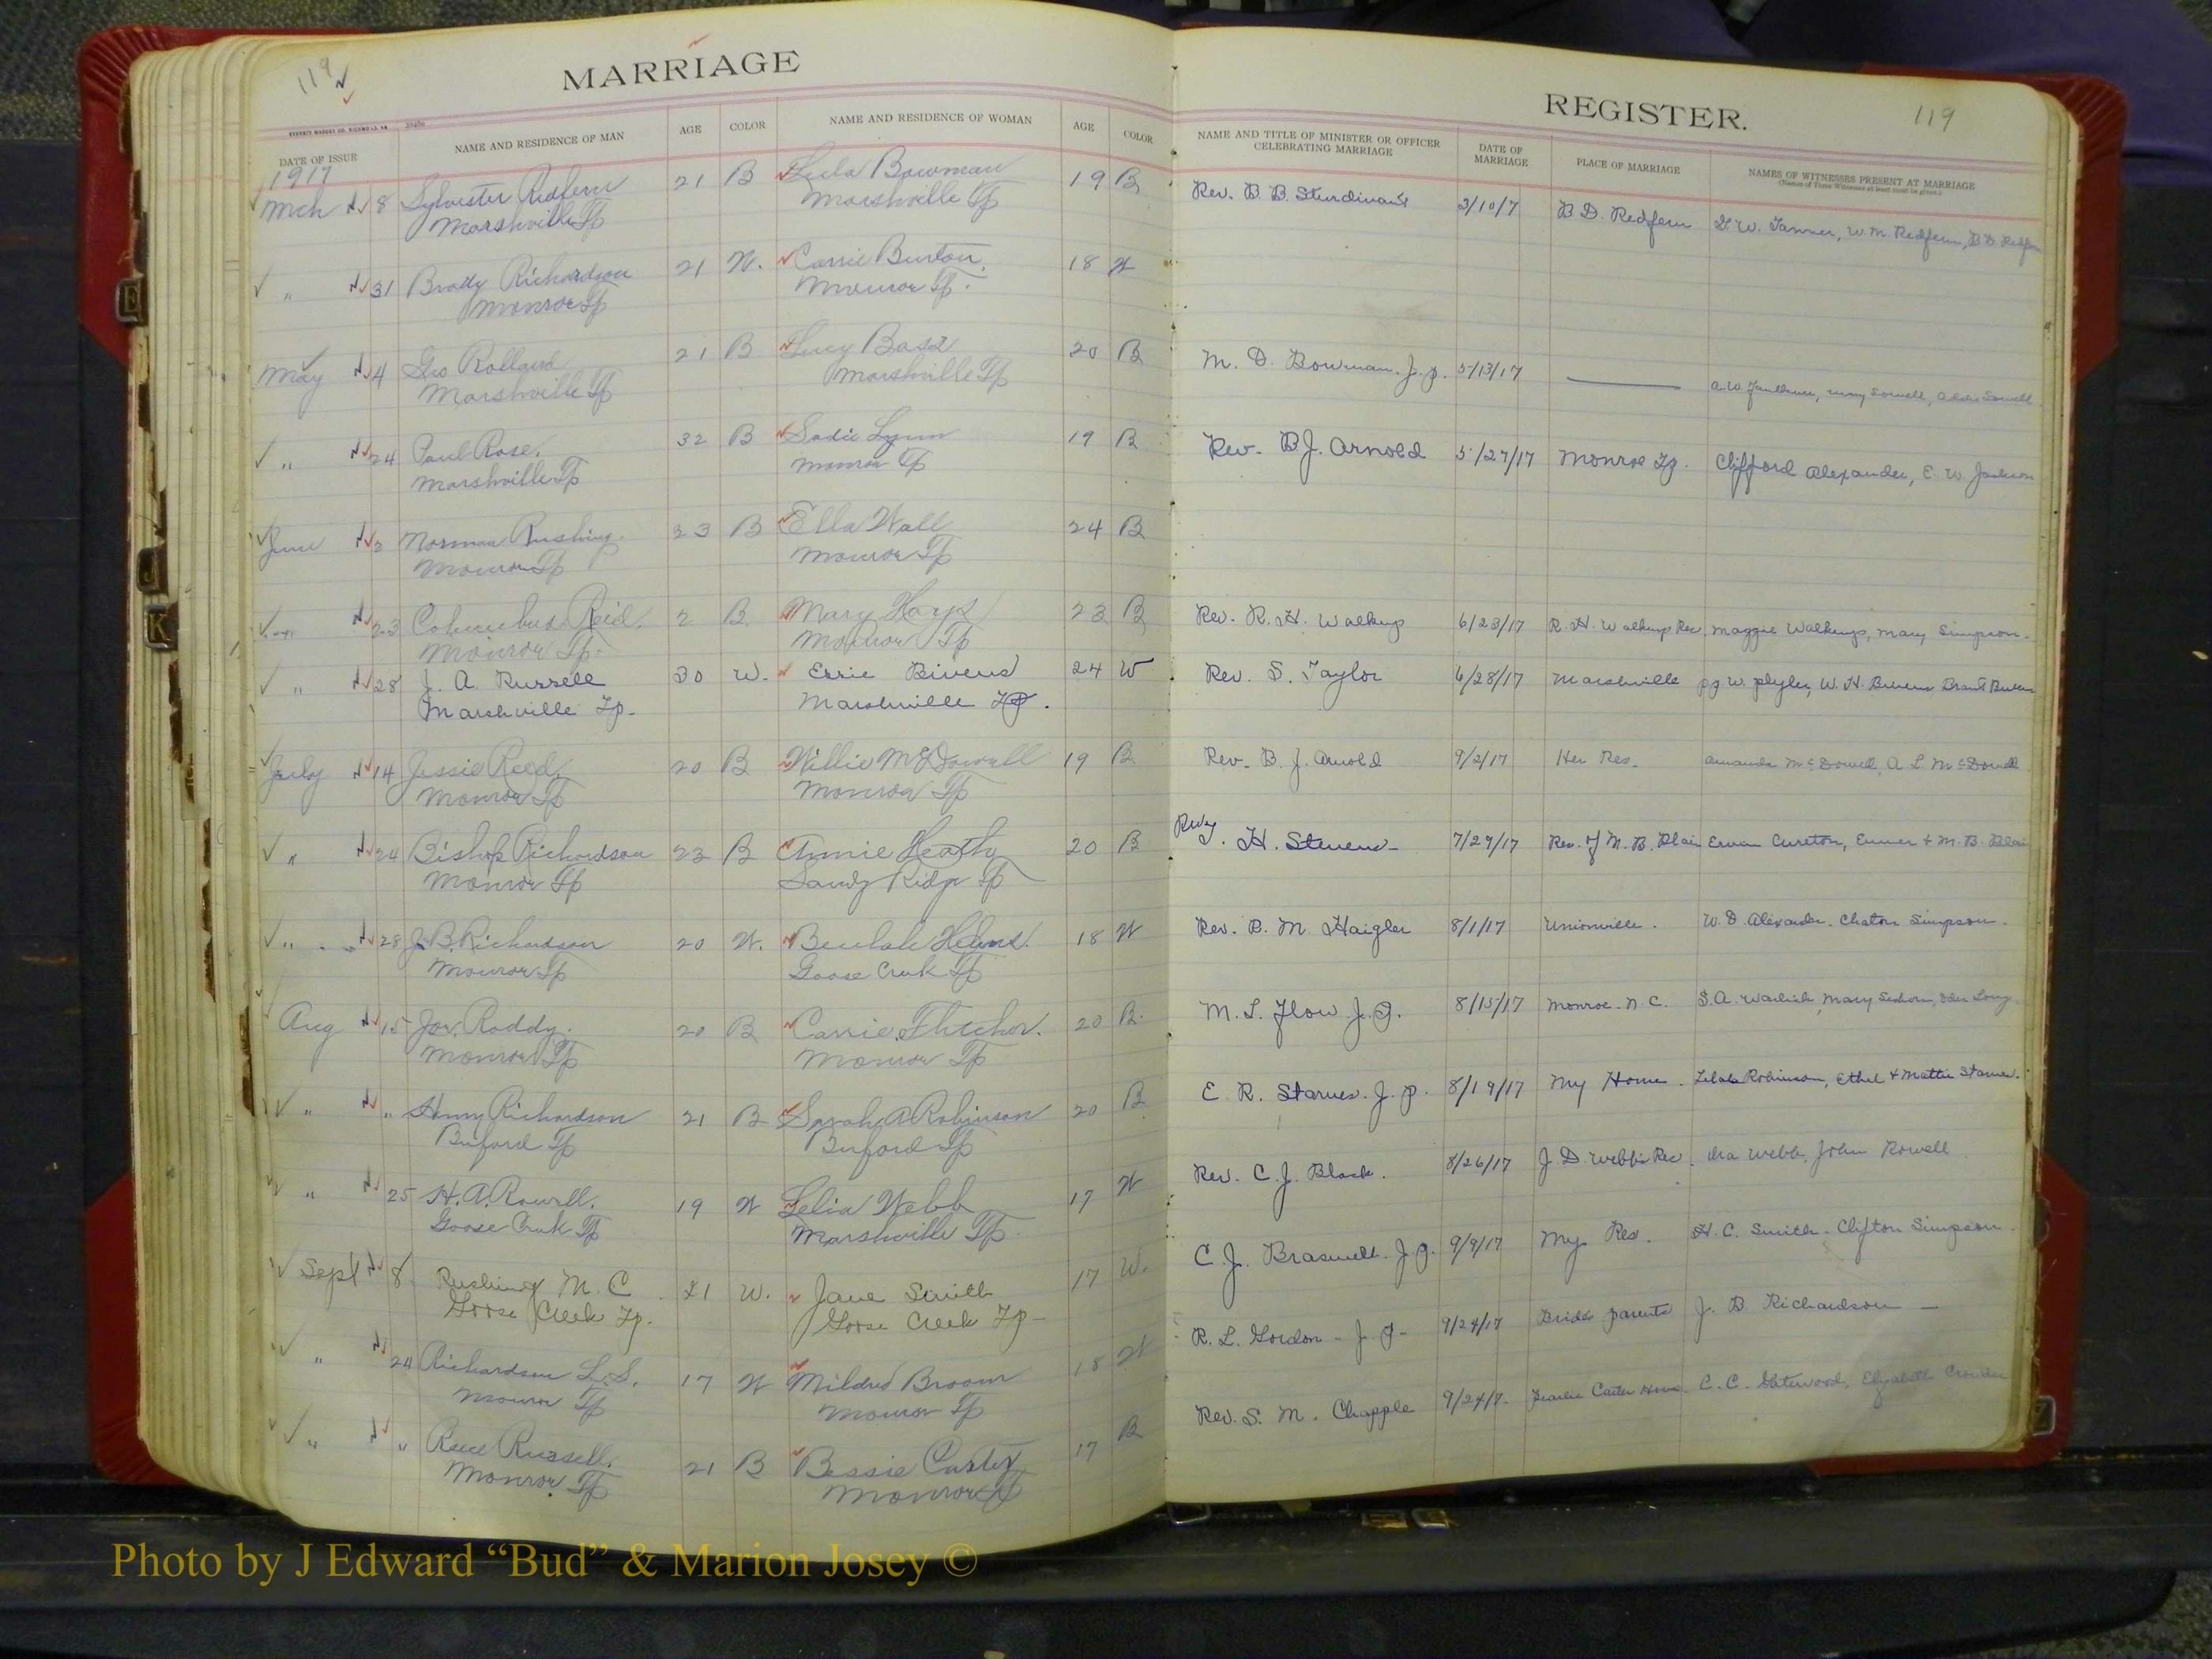 MARRIAGE
119
EVERETT WADDEY CO. RICHMOND, VA
DATE OF ISSUE NAME AND RESIDENCE OF MAN AGE COLOR NAME AND RESIDENCE OF WOMAN AGE COLOR
1917
Mch 8 Sylvester Redfern 21 B Lula Bowman 19 B
Marshville Tp Marshville Tp
" 31 Brady Richardson 21 W. Carrie Burton 18 W
Monroe Tp Monroe Tp.
May 4 Geo Rollard 21 B Lucy 20 B
Marshville Tp Marshville Tp
" 24 Paul Rose. 32 B Sadie Lynn 19 B
Marshville Tp Monroe Tp
June 2 Norman Rushing. 23 B Ella Wall 24 B
Monroe Tp Monroe Tp
" 23 Columbus Reid. 2 B Mary Hays 23 B
Monroe Tp. Monroe Tp
" 28 J. A. Russell 30 W. Essie Bivens 24 W
Marshville Tp. Marshville Tp.
July 14 Jessie Reed. 20 B Willie McDowell 19 B
Monroe Tp Monroe Tp
" 24 Bishop Richardson 23 B Annie Heath 20 B
Monroe Tp Sandy Ridge Tp
" 28 J.B. Richardson 20 W. Beulah Helms. 18 W
Monroe Tp Goose Creek Tp
Aug 15 Jas. Roddy. 20 B Carrie Fletcher. 20 B.
Monroe Tp Monroe Tp
" " Henry Richardson 21 B Sarah A Robinson 20 B
Buford Tp Buford Tp
" 25 H. A. Rowell. 19 W Lelia Webb 17 W
Goose Creek Tp Marshville Tp.
Sept 8 Rushing M. C 21 W. Jane Smith 17 W.
Goose Creek Tp. Goose Creek Tp
" 24 Richardson L. S. 17 W Mildred Broom 18 W
Monroe Tp Monroe Tp
" " Reece Russell. 21 B Bessie Carter 17 B
Monroe Tp Monroe Tp
REGISTER.
119
NAME AND TITLE OF MINISTER OR OFFICER CELEBRATING MARRIAGE DATE OF MARRIAGE PLACE OF MARRIAGE NAMES OF WITNESSES PRESENT AT MARRIAGE
(Names of Three Witnesses at least must be given.)
Rev. B. B. Sturdivant 3/10/7 B D. Redfern W. Tanner, W. M. Redfern, B D Redfern
M. D. Bowman. J. P. 5/13/17 —
Rev. B. J. Arnold 5/27/17 Monroe Tp. Clifford Alexander, E. W. Jackson
Rev. R. H. Walkup 6/23/17 R. H. Walkup Res. Maggie Walkup, Mary Simpson.
Rev. S. Taylor 6/28/17 Marshville W. Plyler, W. H. Bivens Brant Bivens
Rev. B. J. Arnold 9/2/17 Her Res. Amanda McDowell, A L McDowell
Rev J. H. Stevens 7/29/17 Res. of M. B. Blair Ervan Cureton, Emmer + M. B. Blair
Rev. R. M. Haigler 8/1/17 Unionville. W. D. Alexander. Chaton Simpson.
M. L. Flow J. P. 8/15/17 Monroe. N. C. S. A. Warlick, Mary Long
E. R. Starnes. J. P. 8/19/17 My Home. Robinson, Ethel + Mattie Starnes.
Rev. C. J. Black. 8/26/17 J. D. Webb's Res. Ira Webb, John Rowell
C. J. Braswell. J. P. 9/9/17 My Res. H. C. Smith - Clifton Simpson
R. L. Gordon - J. P. 9/24/17 Brides parents J. B. Richardson —
Rev. S. M. Chapple 9/24/7. Carter Home. C. C. Gatewood, Elizabeth Crowder
Photo by J Edward “Bud” & Marion Josey ©